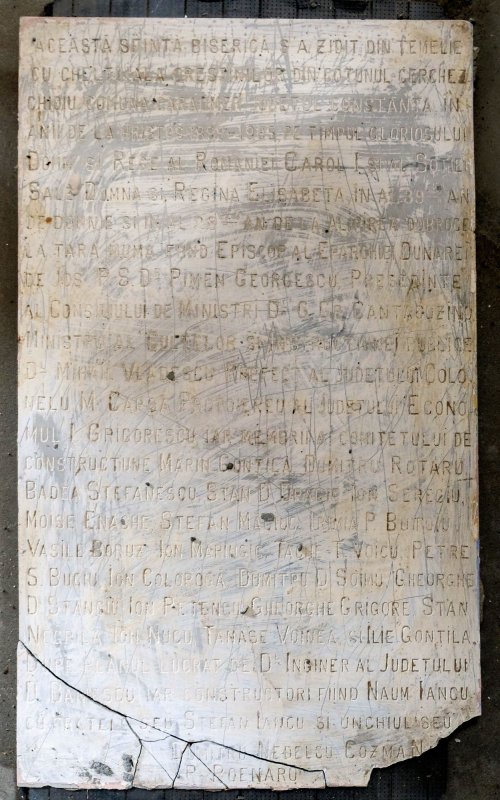 ACEASTĂ SFINTA BISERICĂ S'A ZIDIT DIN TEMELIE
CU CHELTUIALA CREȘTINILOR DIN COTUNUL CERCHEZ
CHIOIU COMUNA JUDEȚUL CONSTANȚA IN
ANII DE LA 1905 PE TIMPUL GLORIOSULUI
DOMN SI REGE AL ROMANIEI CAROL I SI AL SOȚIEI
SALE DOMNA SI REGINA ELISABETA IN AL 39 AN
DE DOMNIE SI IN AL 28 AN DE LA ALIPIREA DOBROGEI
LA ȚARA MUMĂ FIIND EPISCOP AL EPARCHIEI DUNAREI
DE JOS P.S. DR PIMEN GEORGESCU PREȘEDINTE
AL CONSILIULUI DE MINISTRI DL G. GR. CANTACUZINO
MINISTRU AL CULTELOR SI PUBLICE
DL MIHAIL VLĂDESCU PREFECT AL JUDEȚULUI COLO
NELU M. CAPȘA PROTOIEREU AL JUDEȚULUI ECONO
MUL I. GRIGORESCU IAR MEMBRII COMITETULUI DE
CONSTRUCȚIUNE MARIN GONTILĂ DUMITRU ROTARU
BADEA STEFANESCU STAN D. ION SEREGIU
MOISE ENACHE STEFAN P.
VASILE ION TACHE I. VOICU PETRE
S. BUGIU ION COLOROGA DUMITRU D. SOIMU GHEORGHE
D. STANCIU ION PETENCU GHEORGHE GRIGORE STAN
NEGRILA ION NUCU TANASE VOINEA SI ILIE GONȚILA
DUPE PLANUL LUCRAT DE DL INGINER AL JUDEȚULUI
D. IAR CONSTRUCTORI FIIND NAUM IANCU
STEFAN IANCU SI UNCHIUL SEU
NEDELCU COZMA N
P. POENARU